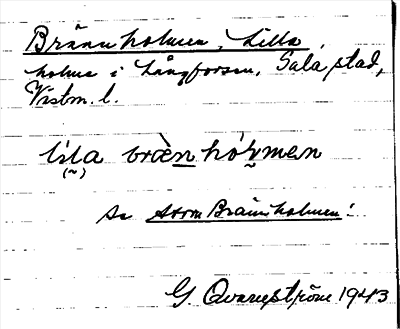 Brännholmen, Lilla
holme i Långforsen, Sala stad,
Västm. l.
lila brænhólmen
(~)
Se Stora Brännholmen!
G. Qvarnström 1943